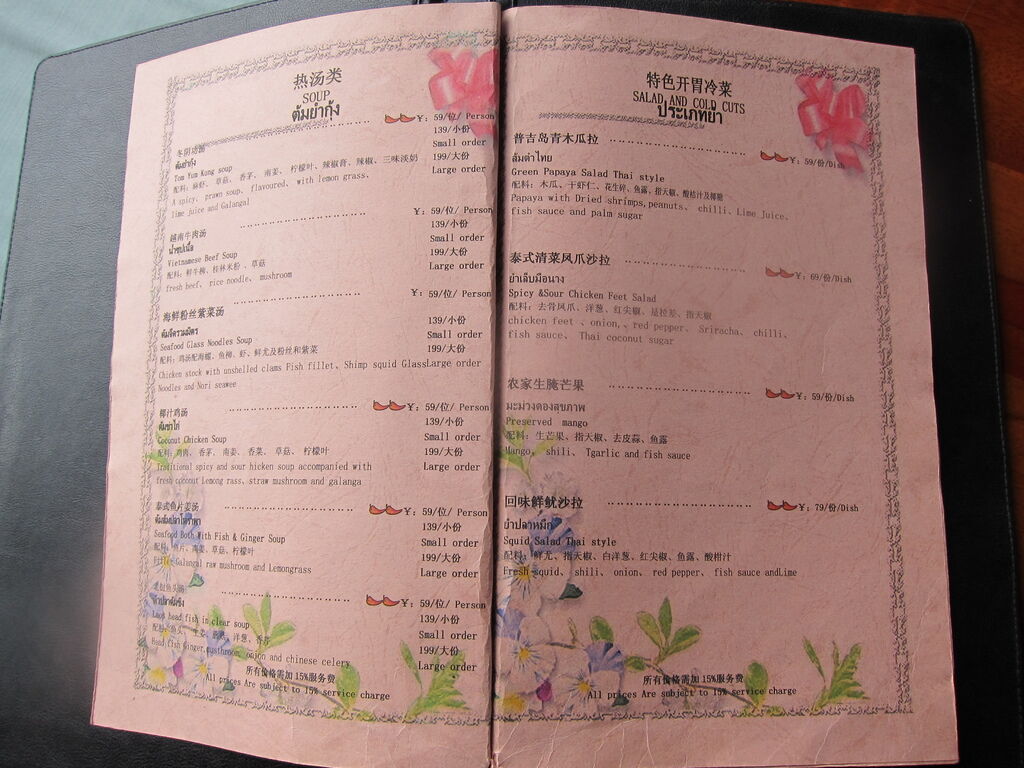 热汤类
SOUP
ต้มยำกุ้ง
冬阴功汤 ¥: 59/位/ Person
ต้มยำกุ้ง 139/小份
Tom Yum Kung soup Small order
配料: 草菇、香茅、南姜、柠檬叶、辣椒膏、辣椒、三味淡奶 199/大份
A spicy, prawn soup, flavoured, with lemon grass, Large order
lime juice and Galangal
越南牛肉汤 ¥: 59/位/ Person
139/小份
Vietnamese Beef Soup Small order
配料: 鲜牛柳、桂林米粉、草菇 199/大份
fresh beef, pice noodle, mushroom Large order
海鲜粉丝紫菜汤 ¥: 59/位/ Person
139/小份
Seafood Glass Noodles Soup Small order
配料: 鸡汤配海螺、鱼柳、虾、鲜尤及粉丝和紫菜 199/大份
Chicken stock with unshelled clams Fish fillet, Shimp squid GlassLarge order
Noodles and Nori seawee
椰汁鸡汤 ¥: 59/位/ Person
ต้มข่าไก่ 139/小份
Coconut Chicken Soup Small order
配料: 鸡肉、香茅、南姜、香菜、草菇、柠檬叶 199/大份
Traditional spicy and sour hicken soup accompanied with Large order
fresh coconut Lemong rass, straw mushroom and galanga
泰式鱼片姜汤 ¥: 59/位/ Person
139/小份
Seafood Both With Fish & Ginger Soup Small order
配料: 鱼片、南姜、草菇、柠檬叶 199/大份
Galangal raw mushroom and Lemongrass Large order
¥: 59/位/ Person
139/小份
head fish in clear soup Small order
洋葱、香芹 199/大份
Head fish Ginger, musthroom, onion and chinese celery Large order
所有价格需加 15%服务费
All prices Are subject to 15% service charge
特色开胃冷菜
SALAD AND COLD CUTS
ประเภทยำ
普吉岛青木瓜拉 ¥: 59/份/Dish
ส้มตำไทย
Green Papaya Salad Thai style
配料: 木瓜、干虾仁、花生碎、鱼露、指天椒、酸桔汁及椰糖
Papaya with Dried shrimps,peanuts、 chilli、Lime Juice、
fish sauce and palm sugar
泰式清菜凤爪沙拉 ¥: 69/份/Dish
ยำเล็บมือนาง
Spicy &Sour Chicken Feet Salad
配料: 去骨凤爪、洋葱、红尖椒、是拉差、指天椒
chicken feet 、onion,、red pepper、 Sriracha、 chilli、
fish sauce、 Thai coconut sugar
农家生腌芒果 ¥: 59/份/Dish
มะม่วงดองสุขภาพ
Preserved mango
配料: 生芒果、指天椒、去皮蒜、鱼露
Mango、 shili、 Tgarlic and fish sauce
回味鲜鱿沙拉 ¥: 79/份/Dish
ยำปลาหมึก
Squid Salad Thai style
配料: 鲜尤、指天椒、白洋葱、红尖椒、鱼露、酸柑汁
Fresh squid、 shili、 onion、 red pepper、 fish sauce andLime
所有价格需加 15%服务费
All prices Are subject to 15% service charge